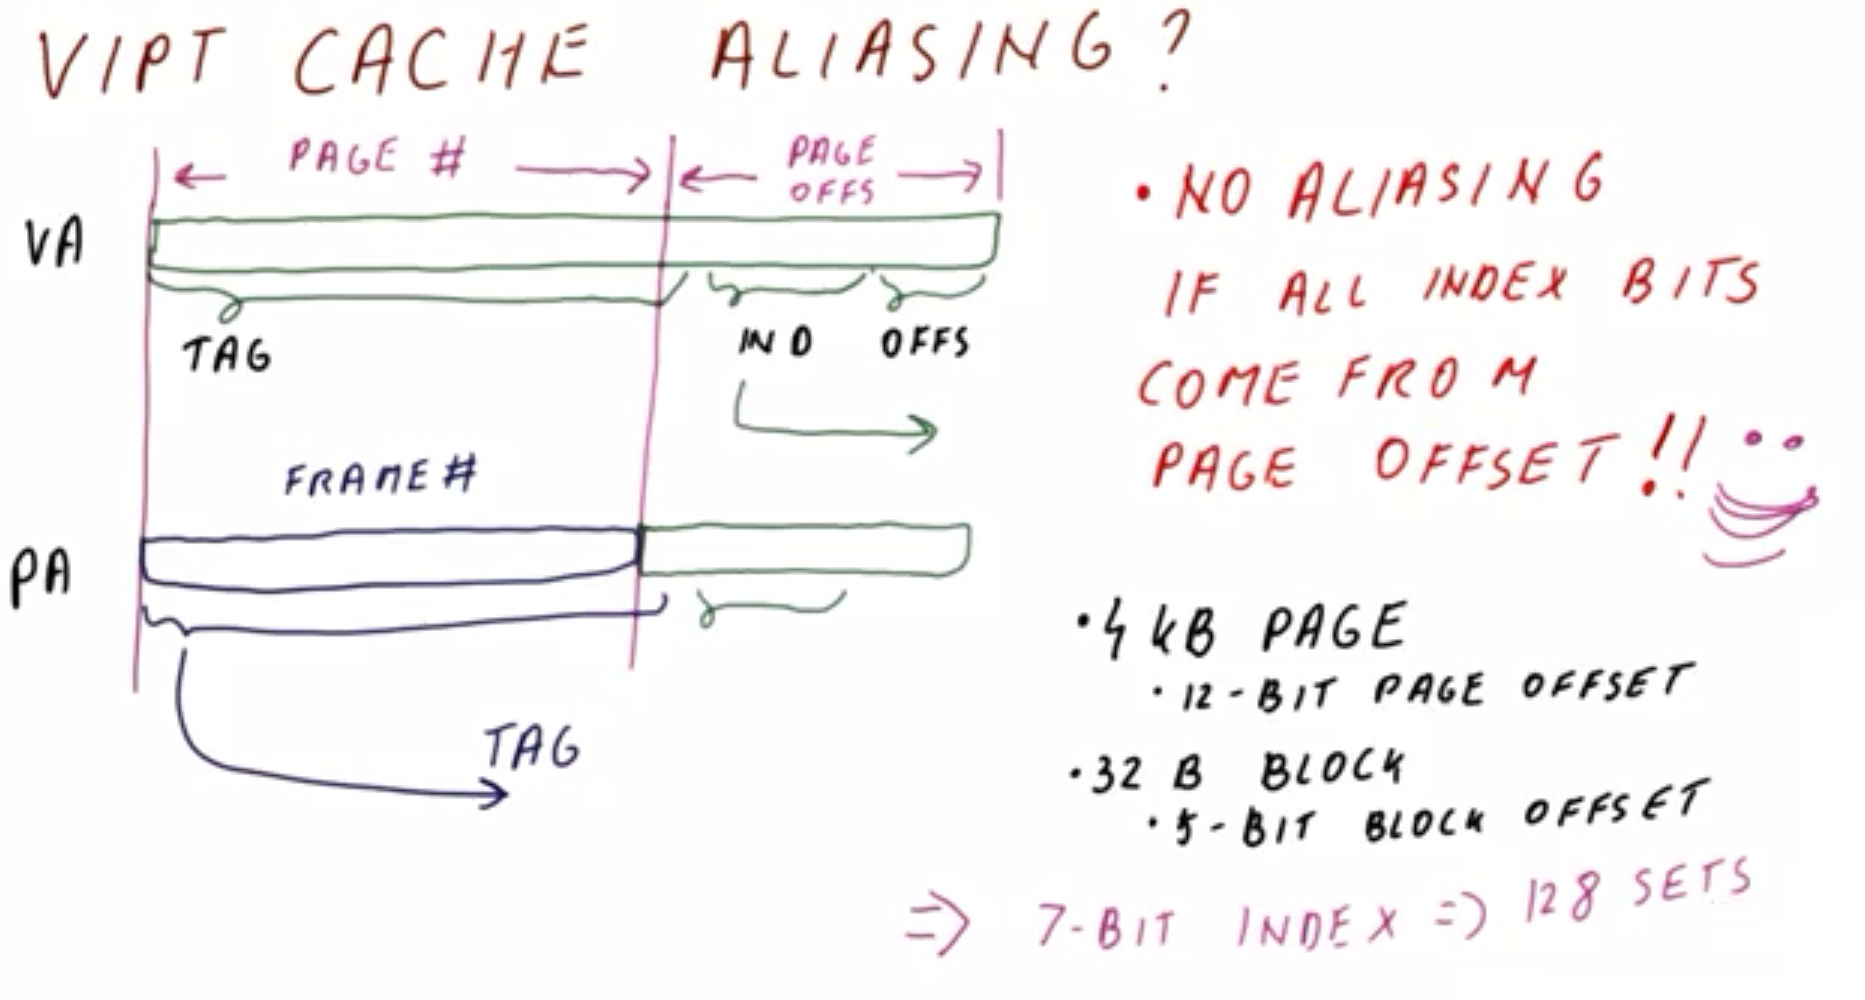 VIPT CACHE ALIASING?
PAGE #
PAGE
OFFS
VA
TAG
IND OFFS
FRAME#
PA
TAG
• NO ALIASING
IF ALL INDEX BITS
COME FROM
PAGE OFFSET!!
• 4 kB PAGE
• 12-BIT PAGE OFFSET
• 32 B BLOCK
• 5-BIT BLOCK OFFSET
=> 7-BIT INDEX => 128 SETS